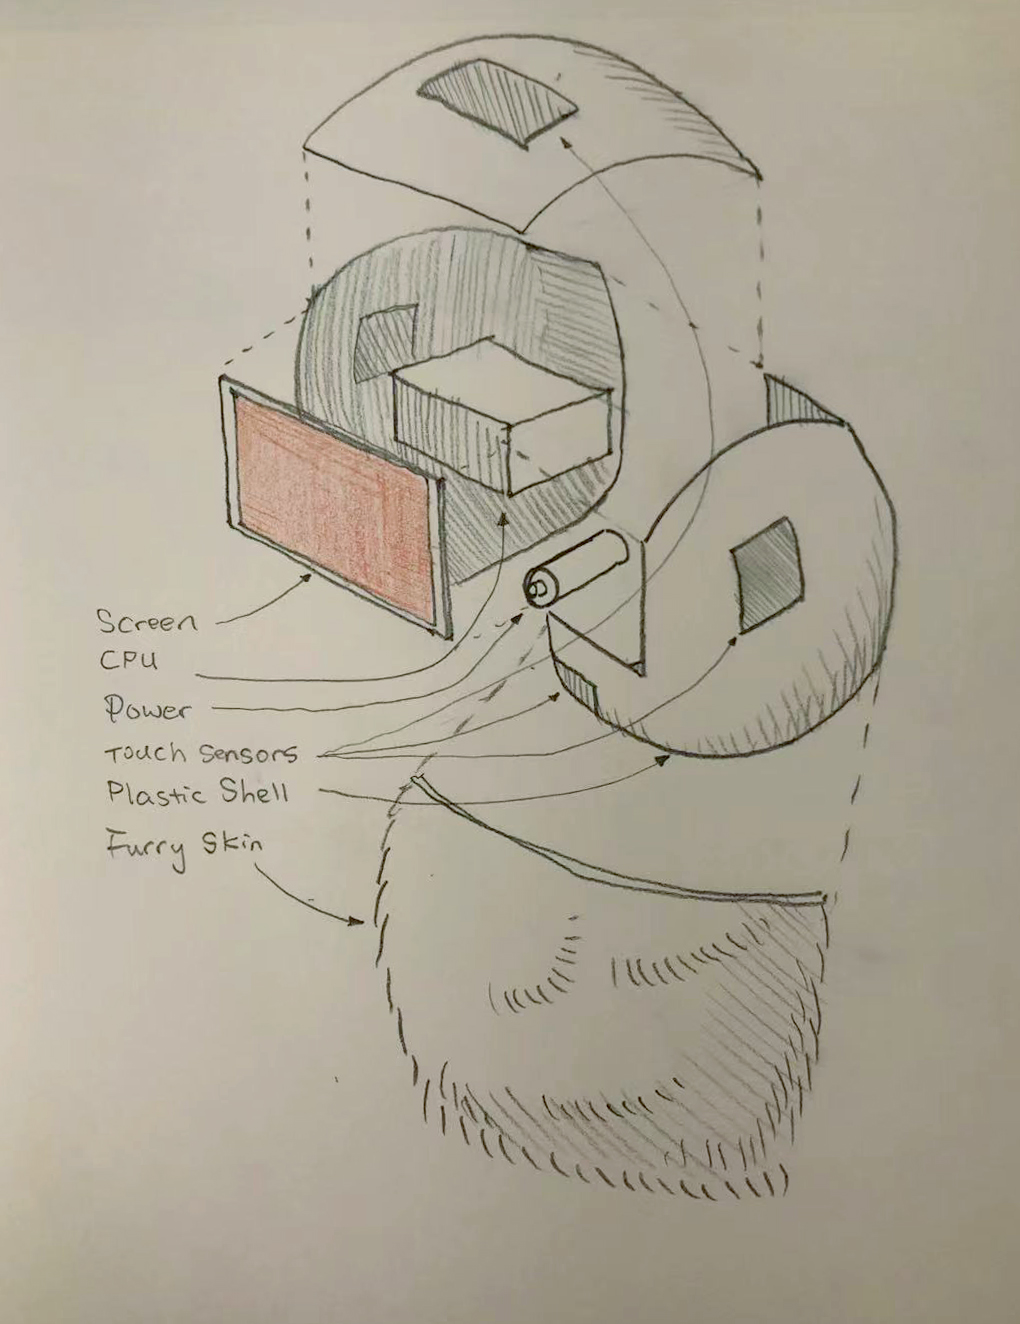 Screen
CPU
Power
Touch Sensors
Plastic Shell
Furry Skin